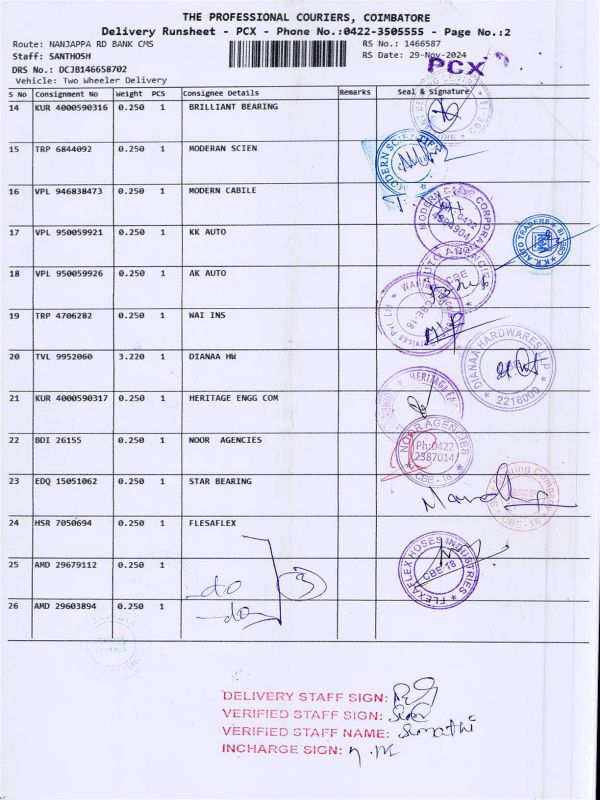 THE PROFESSIONAL COURIERS, COIMBATORE
Delivery Runsheet - PCX - Phone No.:0422-3505555 - Page No.:2
Route: NANJAPPA RD BANK CMS RS No.: 1466587
Staff: SANTHOSH RS Date: 29-Nov-2024
DRS No.: DCJB146658702 PCX
Vehicle: Two Wheeler Delivery
S No Consignment No Weight PCS Consignee Details Remarks Seal & Signature
14 KUR 4000590316 0.250 1 BRILLIANT BEARING
15 TRP 6844092 0.250 1 MODERAN SCIEN
MODERN SCIENTIFIC
16 VPL 946838473 0.250 1 MODERN CABILE
MODERN CORPORATION
17 VPL 950059921 0.250 1 KK AUTO
K.K. AUTO TRADERS
18 VPL 950059926 0.250 1 AK AUTO
CBE
19 TRP 4706282 0.250 1 WAI INS
CBE-18
20 TVL 9952060 3.220 1 DIANAA HW
DIANAA HARDWARES
2216000
21 KUR 4000590317 0.250 1 HERITAGE ENGG COM
HERITAGE
22 BDI 26155 0.250 1 NOOR AGENCIES
NOOR AGENCIES
Ph:0422
2387014
CBE - 18
23 EDQ 15051062 0.250 1 STAR BEARING
CBE-18
24 HSR 7050694 0.250 1 FLESAFLEX
FLEXAFLEX HOSES INDUSTRIES
CBE-18
25 AMD 29679112 0.250 1 do 3
26 AMD 29603894 0.250 1 do
DELIVERY STAFF SIGN:
VERIFIED STAFF SIGN:
VERIFIED STAFF NAME: Sumathi
INCHARGE SIGN: